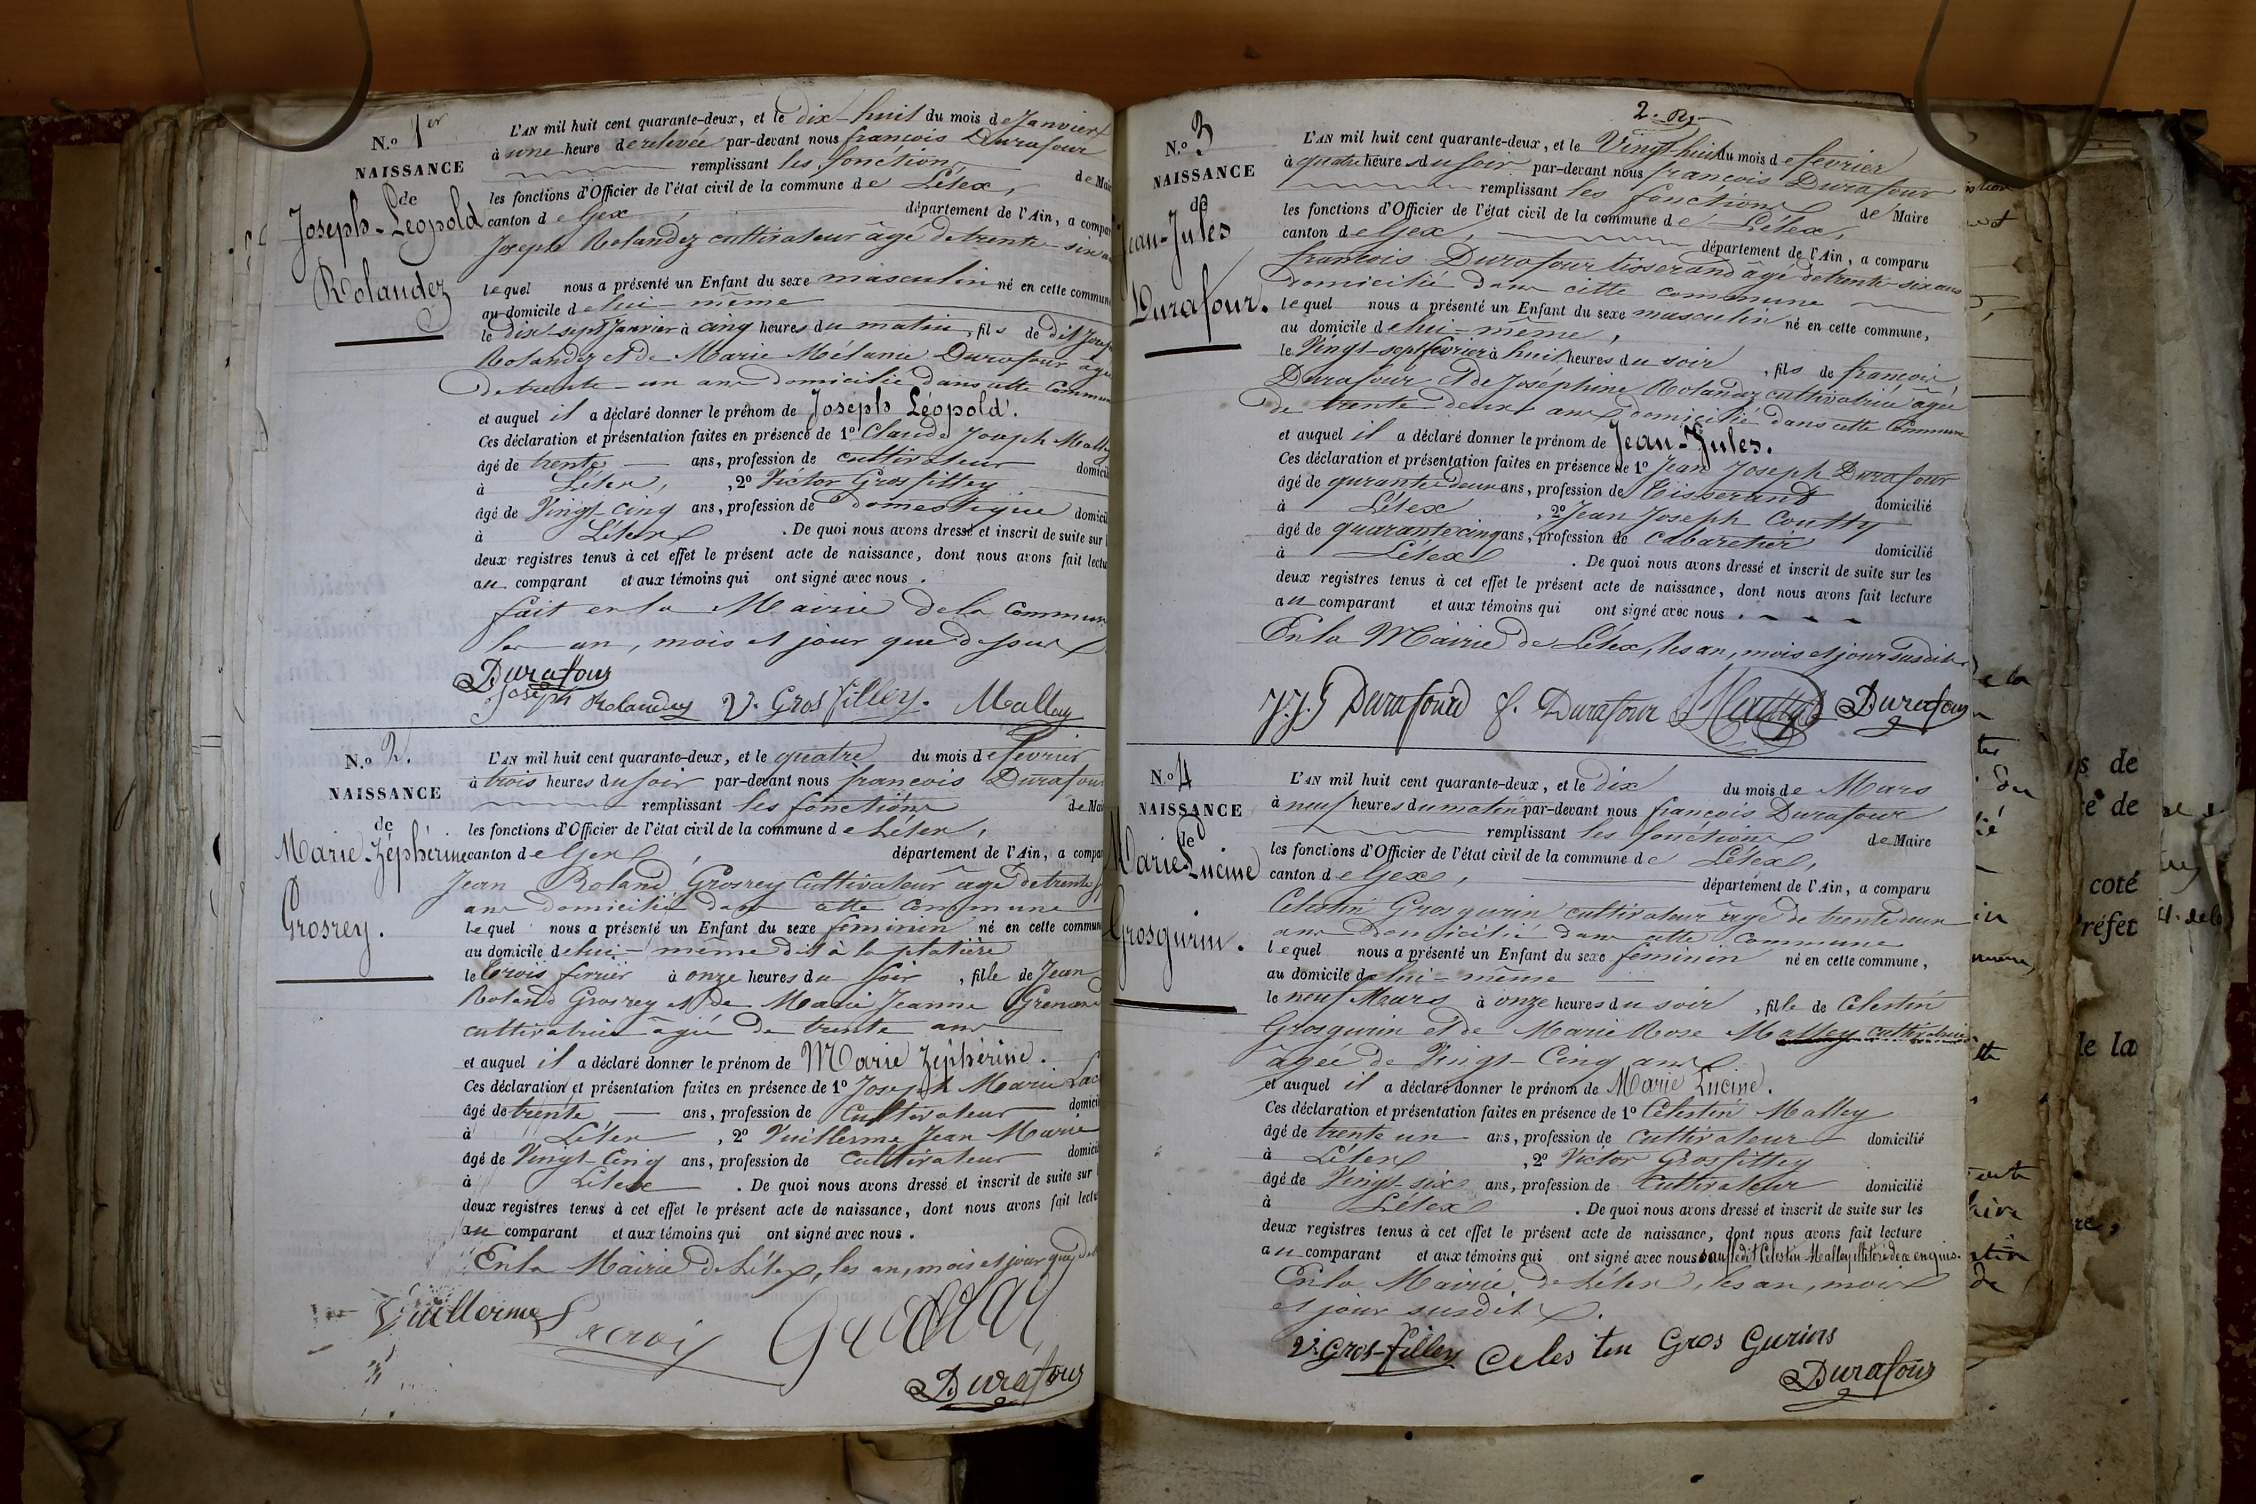 N.o 1er
NAISSANCE
de
Joseph-Léopold
Rolandez
L'AN mil huit cent quarante-deux, et le dix-huit du mois de Janvier
à une heure de relevée par-devant nous françois Durafour
remplissant les fonction de Mai
les fonctions d'Officier de l'état civil de la commune de Lélex,
canton de Gex, département de l'Ain, a compar
Joseph Rolandez cultivateur âgé de trente-six a
lequel nous a présenté un Enfant du sexe masculin né en cette commun
au domicile de lui-même
le dix sept Janvier à cinq heures du matin, fils de dit Josep
Rolandez et de Marie Mélanie Durafour âgé
de trente-un ans domicilié dans cette Commun
et auquel il a déclaré donner le prénom de Joseph Léopold.
Ces déclaration et présentation faites en présence de 1o Claude Joseph Malle
âgé de trente ans, profession de cultivateur domicil
à Lélex, , 2o Victor Grosfilley
âgé de Vingt-cinq ans, profession de domestique domicil
à Lélex . De quoi nous avons dressé et inscrit de suite sur l
deux registres tenus à cet effet le présent acte de naissance, dont nous avons fait lectu
au comparant et aux témoins qui ont signé avec nous.
fait en la Mairie de la Commun
les an, mois et jour que dessus
Durafour
Joseph Rolandez V. Gros filley. Malley
N.o 2.
NAISSANCE
de
Marie-Zéphérine
Grosrey.
L'AN mil huit cent quarante-deux, et le quatre du mois de février
à trois heures du soir par-devant nous françois Durafour
remplissant les fonctions de Mai
les fonctions d'Officier de l'état civil de la commune de Lélex,
canton de Gex, département de l'Ain, a compar
Jean Roland Grosrey Cultivateur âgé de trente
ans domicilié dans cette commune
lequel nous a présenté un Enfant du sexe féminin né en cette commun
au domicile de lui-même dit à la platière
le trois février à onze heures du soir, fille de Jean
Roland Grosrey et de Marie Jeanne Grenard
cultivatrice âgée de trente ans
et auquel il a déclaré donner le prénom de Marie Zéphérine.
Ces déclaration et présentation faites en présence de 1o Joseph Marie Lac
âgé de trente ans, profession de Cultivateur domicil
à Lélex , 2o Vuillerme Jean Marie
âgé de Vingt-Cinq ans, profession de cultivateur domicil
à Lélex . De quoi nous avons dressé et inscrit de suite sur
deux registres tenus à cet effet le présent acte de naissance, dont nous avons fait lectu
au comparant et aux témoins qui ont signé avec nous.
En la Mairie de Lélex, les an, mois et jour que de
Vuillerme Lacroix
Durafour
2.
N.o 3
NAISSANCE
de
Jean-Jules
Durafour.
L'AN mil huit cent quarante-deux, et le Vingt-huit du mois de février
à quatre heures du soir par-devant nous françois Durafour
remplissant les fonctions de Maire
les fonctions d'Officier de l'état civil de la commune de Lélex,
canton de Gex, département de l'Ain, a comparu
françois Durafour tisserand âgé de trente-six ans
domicilié dans cette commune
lequel nous a présenté un Enfant du sexe masculin né en cette commune,
au domicile de lui-même,
le Vingt-sept février à huit heures du soir, fils de françois
Durafour et de Joséphine Rolandez cultivatrice âgée
de trente deux ans domicilié dans cette Commune
et auquel il a déclaré donner le prénom de Jean-Jules.
Ces déclaration et présentation faites en présence de 1o Jean Joseph Durafour
âgé de qurante deux ans, profession de tisserand domicilié
à Lélex , 2o Jean Joseph Coutty
âgé de quarante cinq ans, profession de cabaretier domicilié
à Lélex . De quoi nous avons dressé et inscrit de suite sur les
deux registres tenus à cet effet le présent acte de naissance, dont nous avons fait lecture
au comparant et aux témoins qui ont signé avec nous.
En la Mairie de Lélex, les an, mois et jour susdits
J.J. Durafourd f. Durafour Coutty Durafour
N.o 4
NAISSANCE
de
Marie Lucine
Grosgurin.
L'AN mil huit cent quarante-deux, et le dix du mois de Mars
à neuf heures du matin par-devant nous françois Durafour
remplissant les fonctions de Maire
les fonctions d'Officier de l'état civil de la commune de Lélex,
canton de Gex, département de l'Ain, a comparu
Celestin Grosgurin cultivateur âgé de trente deux
ans domicilié dans cette commune
lequel nous a présenté un Enfant du sexe féminin né en cette commune,
au domicile de lui-même
le neuf Mars à onze heures du soir, fille de Celestin
Grosgurin et de Marie Rose Malley cultivatrice
âgée de Vingt-Cinq ans
et auquel il a déclaré donner le prénom de Marie Lucine.
Ces déclaration et présentation faites en présence de 1o Celestin Malley
âgé de trente un ans, profession de cultivateur domicilié
à Lélex , 2o Victor Grosfilley
âgé de Vingt-six ans, profession de Cultivateur domicilié
à Lélex . De quoi nous avons dressé et inscrit de suite sur les
deux registres tenus à cet effet le présent acte de naissance, dont nous avons fait lecture
au comparant et aux témoins qui ont signé avec nous sauf ledit Celestin Malley illitéré de ce enquis.
En la Mairie de Lélex, les an, mois
et jour susdits.
V. Gros-filley Celes tin Gros Gurins
Durafour
s de
é de
coté
réfet
de la